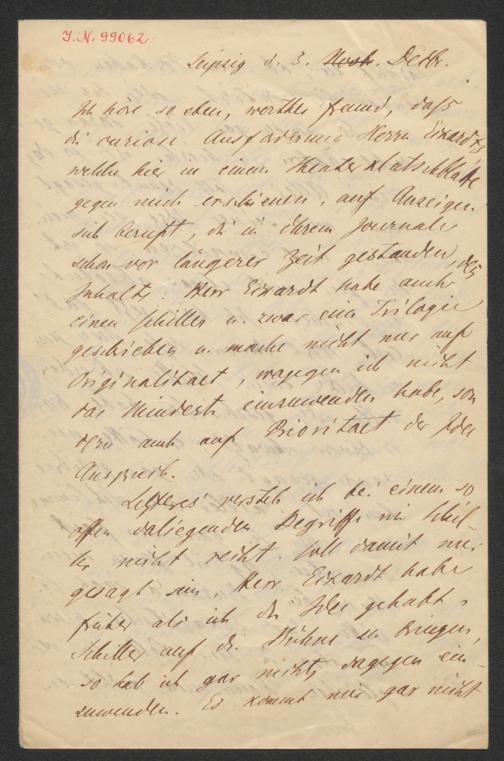 J.N. 99062
Leipzig d. 3. Novb. Decbr.
Ich höre so eben, werther Freund, daß
die curiose Ausforderung Herrn Eckardts
welche hier in einem Theaterklatschblatte
gegen mich erschienen, auf Anzeigen
sich beruft, die in Ihrem Journale
schon vor längerer Zeit gestanden, des
Inhalts: Herr Eckardt habe auch
einen Schiller u. zwar eine Trilogie
geschrieben u. mache nicht nur auf
Originalitaet, wogegen ich nicht
das Mindeste einzuwenden habe, son
dern auch auf Prioritaet der Idee
Anspruch.
Letzteres versteh ich bei einem so
offen daliegenden Begriffe wie Schil-
ler nicht recht. Soll damit nur
gesagt sein, Herr Eckardt habe
früher als ich die Idee gehabt,
Schiller auf die Bühne zu bringen,
so hab ich gar nichts dagegen ein-
zuwenden. Es kommt mir gar nicht